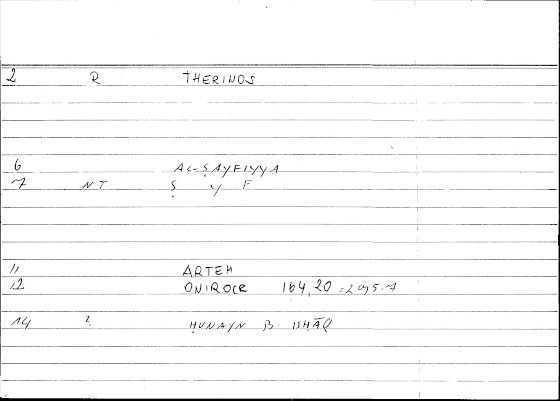 2 R THERINOS
6 AL-ṢAYFIYYA
7 NT Ṣ Y F
11 ARTEM
12 ONIROCR 164,20 = 295.7
14 ? ḤUNAYN B. ISḤĀQ